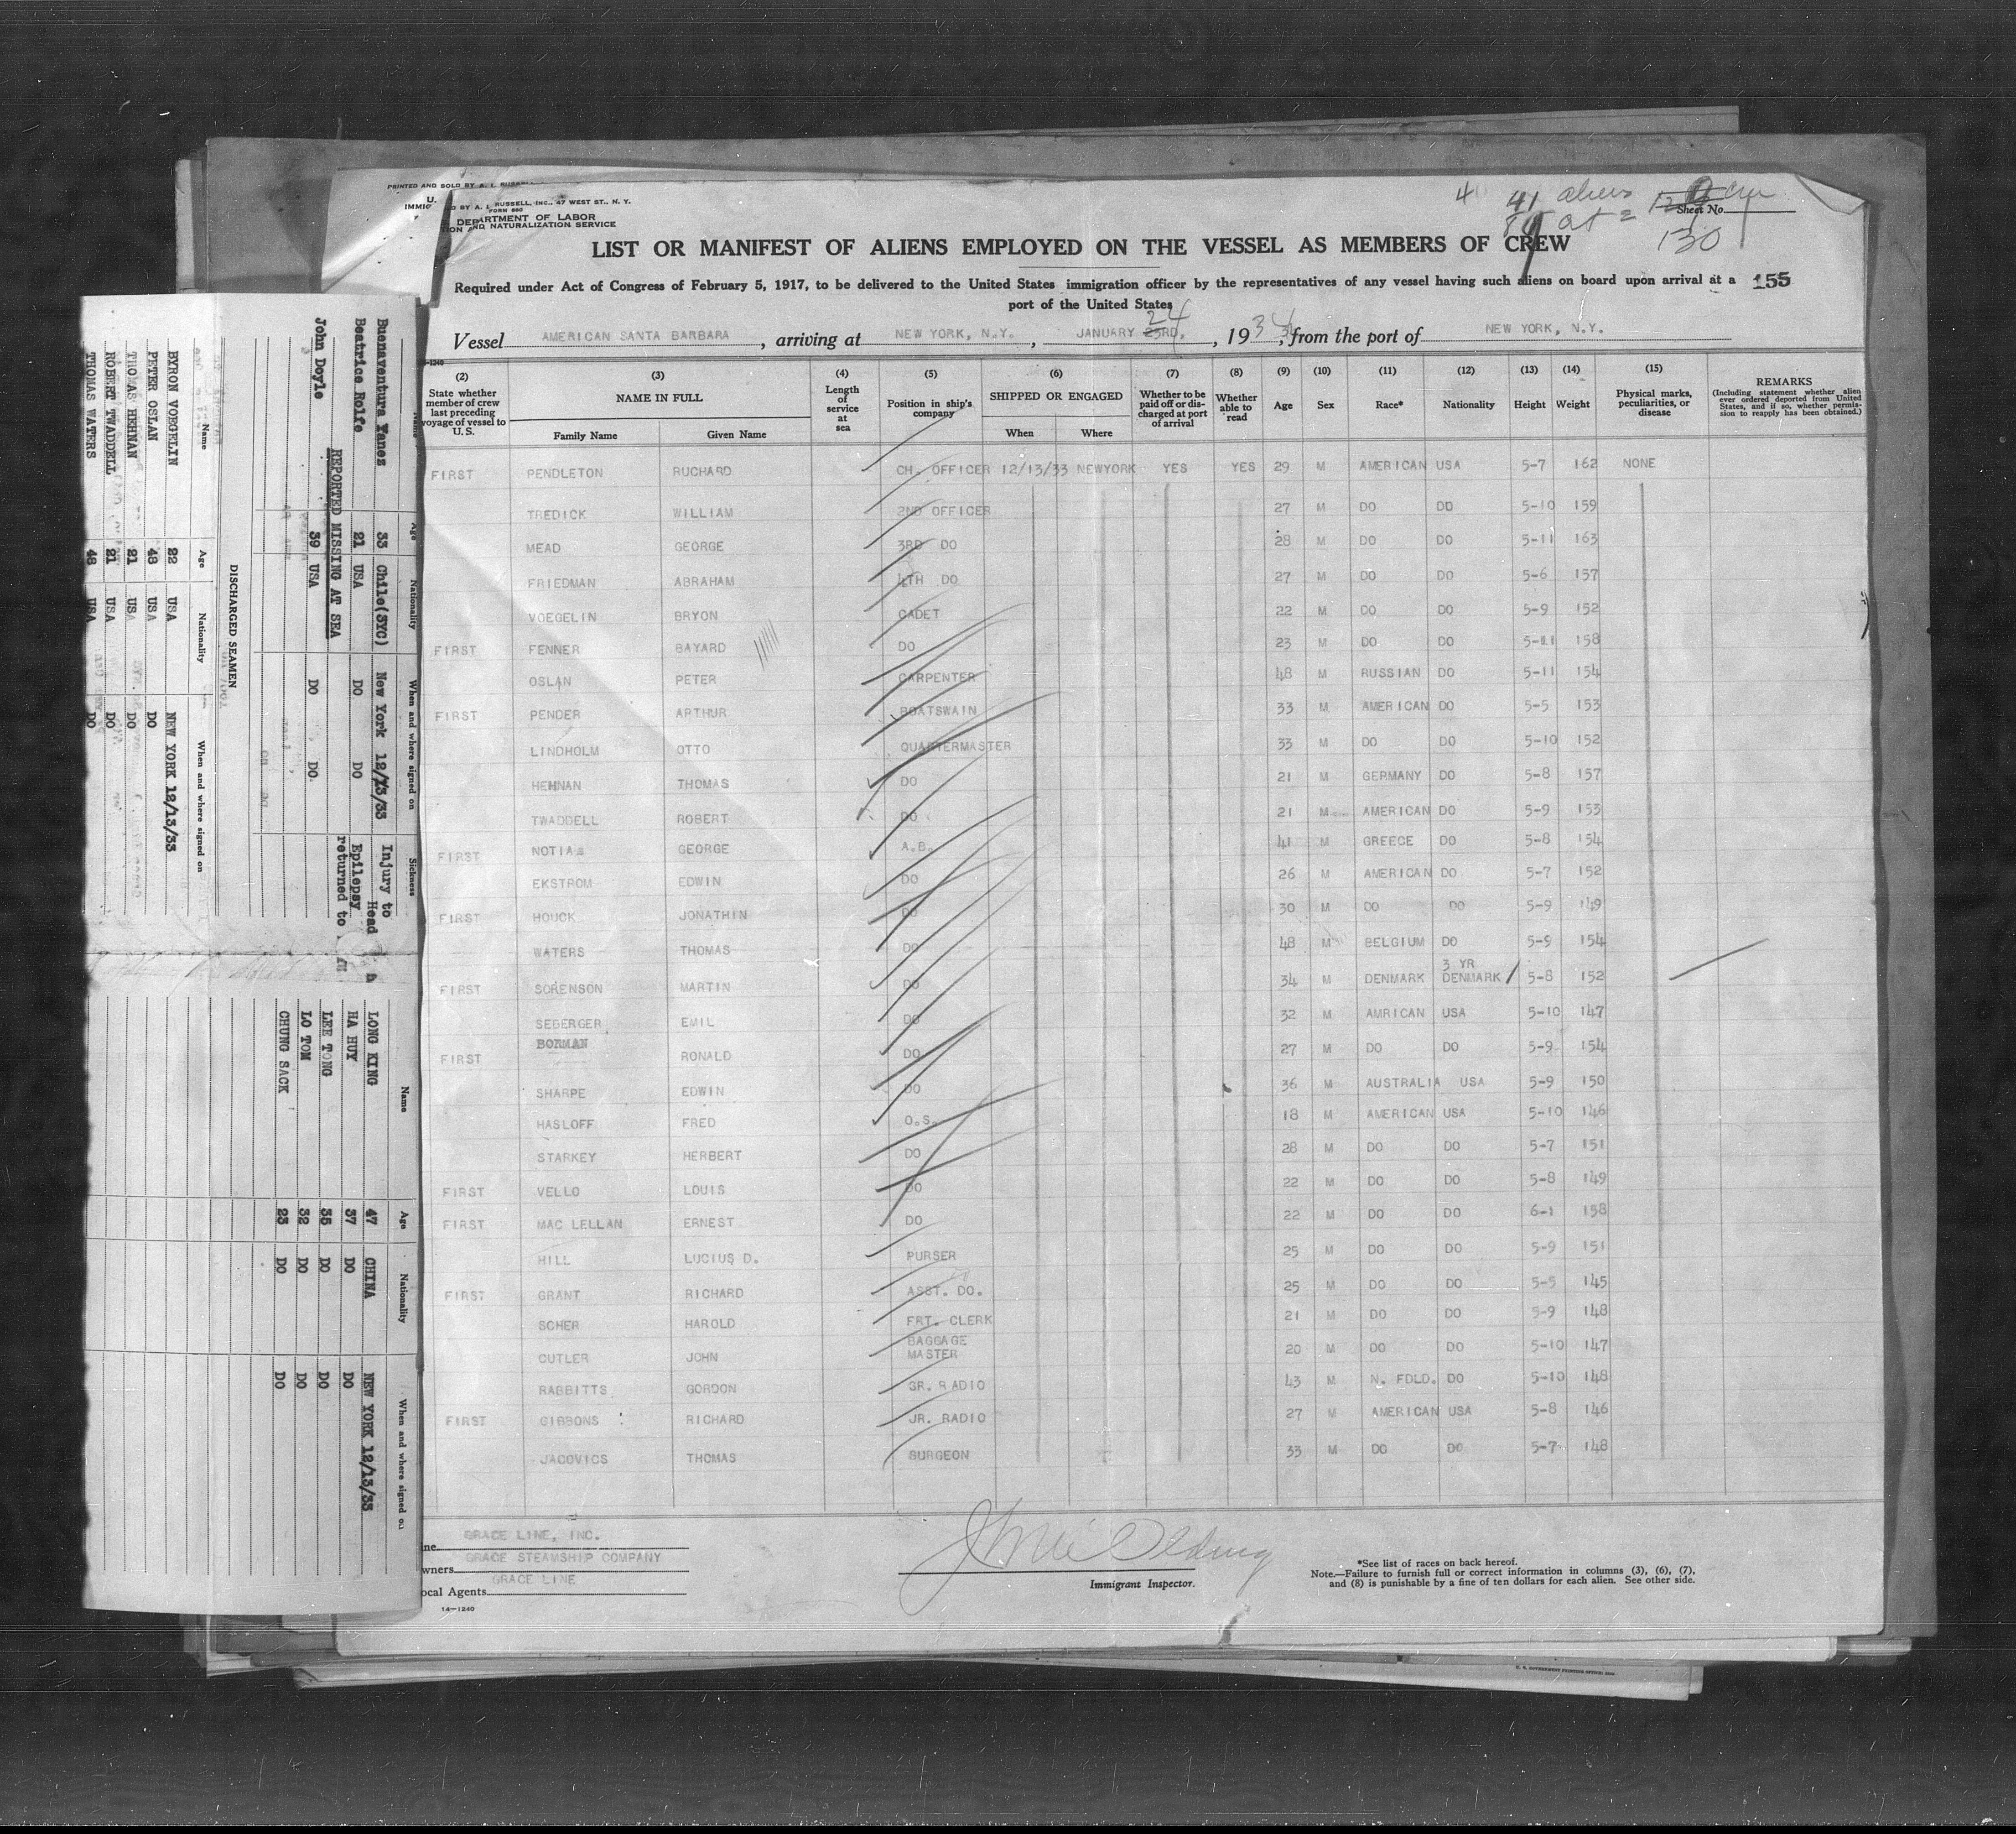 PRINTED AND SOLD BY A. I. RUSSELL
U.
IMMIG
D BY A. I. RUSSELL, INC., 47 WEST ST., N. Y.
FORM 680
DEPARTMENT OF LABOR
ION AND NATURALIZATION SERVICE
4 41 aliens
at =
Sheet No.
130
LIST OR MANIFEST OF ALIENS EMPLOYED ON THE VESSEL AS MEMBERS OF CREW
Required under Act of Congress of February 5, 1917, to be delivered to the United States immigration officer by the representatives of any vessel having such aliens on board upon arrival at a 155
port of the United States
Vessel AMERICAN SANTA BARBARA, arriving at NEW YORK, N.Y., JANUARY 23RD. 24, 1934, from the port of NEW YORK, N.Y.
(2) State whether member of crew last preceding voyage of vessel to U. S.
(3) NAME IN FULL Family Name Given Name
(4) Length of service at sea
(5) Position in ship's company
(6) SHIPPED OR ENGAGED When Where
(7) Whether to be paid off or discharged at port of arrival
(8) Whether able to read
(9) Age
(10) Sex
(11) Race*
(12) Nationality
(13) Height
(14) Weight
(15) Physical marks, peculiarities, or disease
REMARKS (Including statement whether alien ever ordered deported from United States, and if so, whether permission to reapply has been obtained.)
FIRST PENDLETON RUCHARD CH. OFFICER 12/13/33 NEWYORK YES YES 29 M AMERICAN USA 5-7 162 NONE
TREDICK WILLIAM 2ND OFFICER 27 M DO DO 5-10 159
MEAD GEORGE 3RD DO 28 M DO DO 5-11 163
FRIEDMAN ABRAHAM 4TH DO 27 M DO DO 5-6 137
VOEGELIN BRYON CADET 22 M DO DO 5-9 152
FIRST FENNER BAYARD DO 23 M DO DO 5-11 158
OSLAN PETER CARPENTER 48 M RUSSIAN DO 5-11 154
FIRST PENDER ARTHUR BOATSWAIN 33 M AMERICAN DO 5-5 153
LINDHOLM OTTO QUARTERMASTER 33 M DO DO 5-10 152
HEHNAN THOMAS DO 21 M GERMANY DO 5-8 157
TWADDELL ROBERT DO 21 M AMERICAN DO 5-9 153
FIRST NOTIAS GEORGE A.B. 41 M GREECE DO 5-8 154
EKSTROM EDWIN DO 26 M AMERICAN DO 5-7 152
FIRST HOUCK JONATHIN DO 30 M DO DO 5-9 149
WATERS THOMAS DO 48 M BELGIUM DO 5-9 154
FIRST SORENSON MARTIN DO 34 M DENMARK 3 YR DENMARK 5-8 152
SEBERGER EMIL DO 32 M AMRICAN USA 5-10 147
FIRST BORMAN RONALD DO 27 M DO DO 5-9 154
SHARPE EDWIN DO 36 M AUSTRALIA USA 5-9 150
HASLOFF FRED O.S. 18 M AMERICAN USA 5-10 146
STARKEY HERBERT DO 28 M DO DO 5-7 151
FIRST VELLO LOUIS DO 22 M DO DO 5-8 149
FIRST MAC LELLAN ERNEST DO 22 M DO DO 6-1 158
HILL LUCIUS D. PURSER 25 M DO DO 5-9 151
FIRST GRANT RICHARD ASST. DO. 25 M DO DO 5-5 145
SCHER HAROLD FRT. CLERK 21 M DO DO 5-9 148
CUTLER JOHN BAGGAGE MASTER 20 M DO DO 5-10 147
RABBITTS GORDON SR. RADIO 43 M N. FDLD. DO 5-10 148
FIRST GIBBONS RICHARD JR. RADIO 27 M AMERICAN USA 5-8 146
JACOVICS THOMAS SURGEON 33 M DO DO 5-7 148
ne GRACE LINE, INC.
wners GRACE STEAMSHIP COMPANY
ocal Agents GRACE LINE
14-1240
Immigrant Inspector.
*See list of races on back hereof.
Note.—Failure to furnish full or correct information in columns (3), (6), (7),
and (8) is punishable by a fine of ten dollars for each alien. See other side.
Name Age Nationality When and where signed on Sickness
Buenaventura Yanez 33 Chile(SYC) New York 12/13/33 Injury to Head
Beatrice Rolfe 21 USA DO DO Epilepsy
returned to
REPORTED MISSING AT SEA
John Doyle 39 USA DO DO.
DISCHARGED SEAMEN
Name Age Nationality When and where signed on
BYRON VOEGELIN 22 USA NEW YORK 12/13/33
PETER OSLAN 48 USA DO
THOMAS HEHNAN 21 USA DO
ROBERT TWADDELL 21 USA DO
THOMAS WATERS 48 USA DO
Name Age Nationality When and where signed on
LONG KING 47 CHINA NEW YORK 12/13/33
HA HUY 37 DO DO
LEE TONG 35 DO DO
LO TOM 32 DO DO
CHUNG SACK 23 DO DO